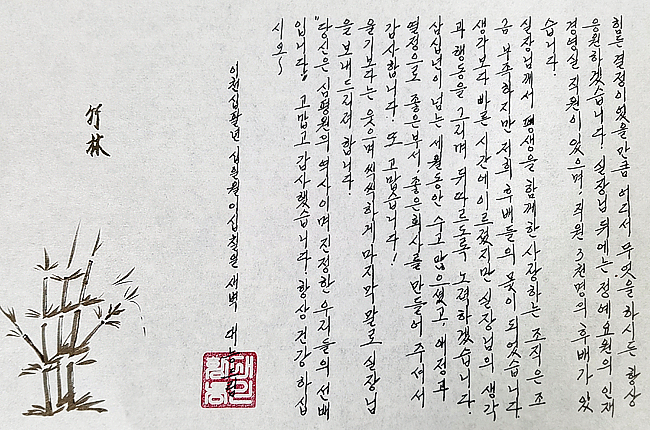 힘든 결정이었을 만큼 어디서 무엇을 하시든 항상
응원하겠습니다! 실장님 뒤에는 정예요원의 인재
경영실 직원이 있으며, 직원 3천명의 후배가 있
습니다.
실장님께서 평생을 함께한 사랑하는 조직은 조
금 부족하지만 저희 후배들의 몫이 되었습니다
생각보다 빠른 시간에 이르렀지만 실장님의 생각
과 행동을 그리며 뒤따르도록 노력하겠습니다.
삼십년이 넘는 세월동안 수고 많으셨고, 애정과
열정으로 좋은 부서, 좋은 회사를 만들어 주셔서
감사합니다! 또 고맙습니다!
울기보다는 웃으며 씩씩하게 마지막 말로 실장님
을 보내드리려 합니다
"당신은 심평원의 역사이며 진정한 우리들의 선배
입니다" 고맙고 감사했습니다! 항상 건강하십
시오~
이천십팔년 십월 이십칠일 새벽
竹林